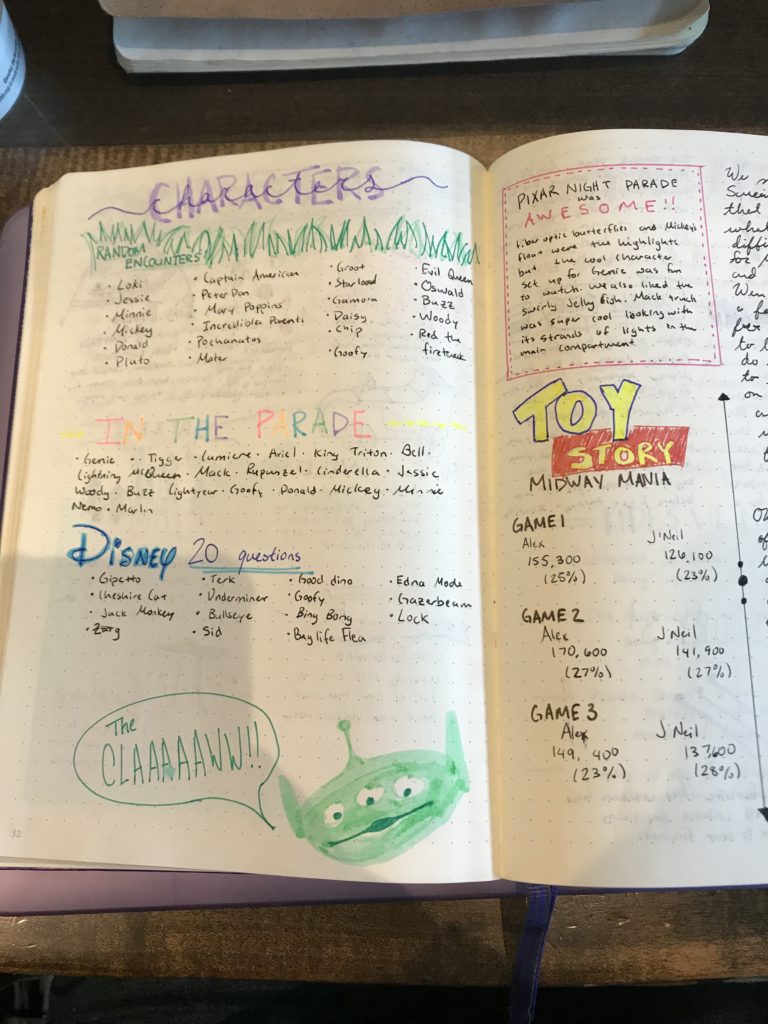 CHARACTERS
characters
RANDOM
ENCOUNTERS!
• Loki
• Jessie
• Minnie
• Mickey
• Donald
• Pluto
• Captain American
• Peter Pan
• Mary Poppins
• Incredibles Parents
• Pochanatas
• Mater
• Groot
• Starload
• Gamora
• Daisy
• Chip
• Goofy
• Evil Queen
• Oswald
• Buzz
• Woody
• Red the
firetruck
IN THE PARADE
• Genie • Tigger • Lumiere • Ariel • King Triton • Bell •
Lightning McQueen • Mack • Rapunzel • Cinderella • Jessie
Woody • Buzz Lightyear • Goofy • Donald • Mickey • Minnie
Nemo • Marlin
DISNEY 20 questions
• Gipetto
• Cheshire Cat
• Jack Monkey
• Zurg
• Terk
• Underminer
• Bullseye
• Sid
• Good dino
• Goofy
• Bing Bong
• Bug life Flea
• Edna Mode
• Gazerbeam
• Lock
The
CLAAAAAWW!!
52
PIXAR NIGHT PARADE
was
AWESOME!!
fiber optic butterflies and Mickey's
float were the highlights
but the cool character
set up for Genie was fun
to watch. We also liked the
swirly Jelly fish. Mack truck
was super cool looking with
its strands of lights in the
main compartment.
TOY
STORY
MIDWAY MANIA
GAME 1
Alex J'Neil
155,300 126,100
(25%) (23%)
GAME 2
Alex J'Neil
170,600 141,900
(27%) (27%)
GAME 3
Alex J'Neil
149,400 137,600
(23%) (28%)
We
that
and
a
free
to
do
to
on